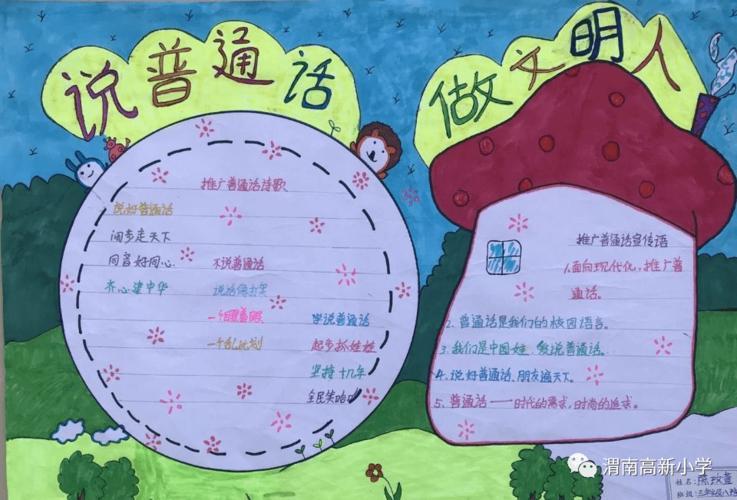 说普通话
做文明人
推广普通话诗歌
说好普通话
阔步走天下
同音好同心
齐心建中华
不说普通话
说话偏打岔
一个
一个乱比划
学说普通话
起步抓娃娃
坚持十几年
全民笑哈哈
推广普通话宣传语
1.面向现代化,推广普
通话。
2.普通话是我们的校园语言。
3.我们是中国娃、爱说普通话。
4.说好普通话、朋友遍天下。
5.普通话——时代的需求,时尚的追求。
渭南高新小学
姓名:陈
班级:三年级八班